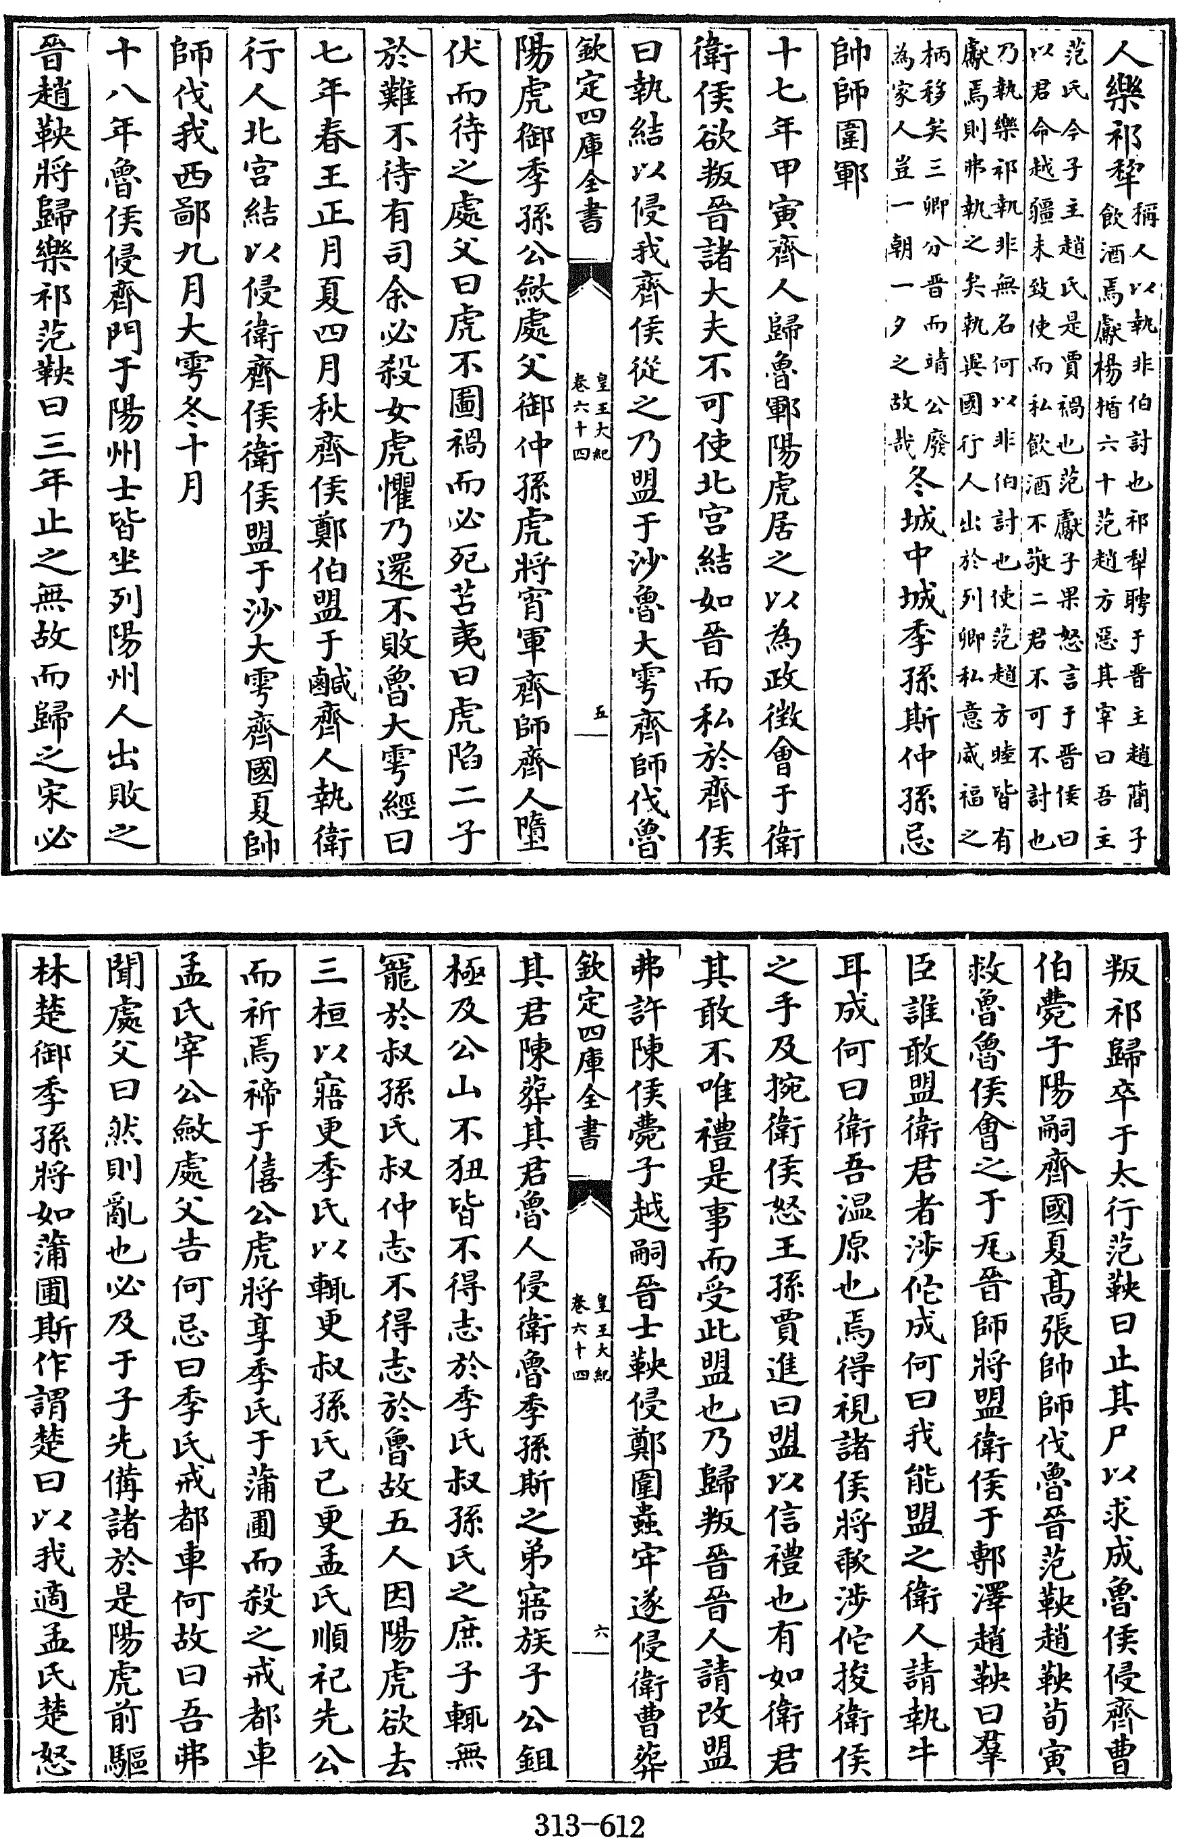 人樂祁犂稱人以執非伯討也祁犂聘于晉主趙簡子
飲酒焉獻楊楯六十范趙方惡其宰曰吾主
范氏今子主趙氏是賈禍也范獻子果怒言于晉侯曰
以君命越疆未致使而私飲酒不敬二君不可不討也
乃執樂祁執非無名何以非伯討也使范趙方睦皆有
獻焉則弗執之矣執異國行人出於列卿私意威福之
柄移矣三卿分晉而靖公廢
為家人豈一朝一夕之故哉冬城中城季孫斯仲孫忌
帥師圍鄆
十七年甲寅齊人歸魯鄆陽虎居之以為政徴會于衛
衛侯欲叛晉諸大夫不可使北宮結如晉而私於齊侯
曰執結以侵我齊侯從之乃盟于沙魯大雩齊師伐魯
欽定四庫全書
皇王大紀
卷六十四
五
陽虎御季孫公斂處父御仲孫虎將宵軍齊師齊人墮
伏而待之處父曰虎不圖禍而必死苫夷曰虎陷二子
於難不待有司余必殺女虎懼乃還不敗魯大雩經曰
七年春王正月夏四月秋齊侯鄭伯盟于鹹齊人執衛
行人北宮結以侵衛齊侯衛侯盟于沙大雩齊國夏帥
師伐我西鄙九月大雩冬十月
十八年魯侯侵齊門于陽州士皆坐列陽州人出敗之
晉趙鞅將歸樂祁范鞅曰三年止之無故而歸之宋必
叛祁歸卒于太行范鞅曰止其尸以求成魯侯侵齊曹
伯薨子陽嗣齊國夏高張帥師伐魯晉范鞅趙鞅荀寅
救魯魯侯會之于瓦晉師將盟衛侯于鄟澤趙鞅曰羣
臣誰敢盟衛君者涉佗成何曰我能盟之衛人請執牛
耳成何曰衛吾温原也焉得視諸侯將歃涉佗捘衛侯
之手及捥衛侯怒王孫賈進曰盟以信禮也有如衛君
其敢不唯禮是事而受此盟也乃歸叛晉晉人請改盟
弗許陳侯薨子越嗣晉士鞅侵鄭圍蟲牢遂侵衛曹葬
欽定四庫全書
皇王大紀
卷六十四
六
其君陳葬其君魯人侵衛魯季孫斯之弟寤族子公鉏
極及公山不狃皆不得志於季氏叔孫氏之庶子輒無
寵於叔孫氏叔仲志不得志於魯故五人因陽虎欲去
三桓以寤更季氏以輒更叔孫氏已更孟氏順祀先公
而祈焉禘于僖公虎將享季氏于蒲圃而殺之戒都車
孟氏宰公斂處父告何忌曰季氏戒都車何故曰吾弗
聞處父曰然則亂也必及于子先備諸於是陽虎前驅
林楚御季孫將如蒲圃斯作謂楚曰以我適孟氏楚怒
313-612